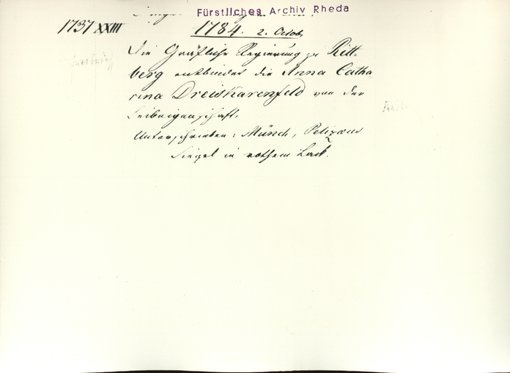 Fürstliches Archiv Rheda
1737 XXIII
1784. 2. Octob.
Die Gräfliche Regierung zu Ritt-
berg entbindet die Anna Catha
rina Dreiskarenfeld von der
Leibeigenschaft.
Unterschrieben: Münch, Pelizaeus
Siegel in rothem Lack.